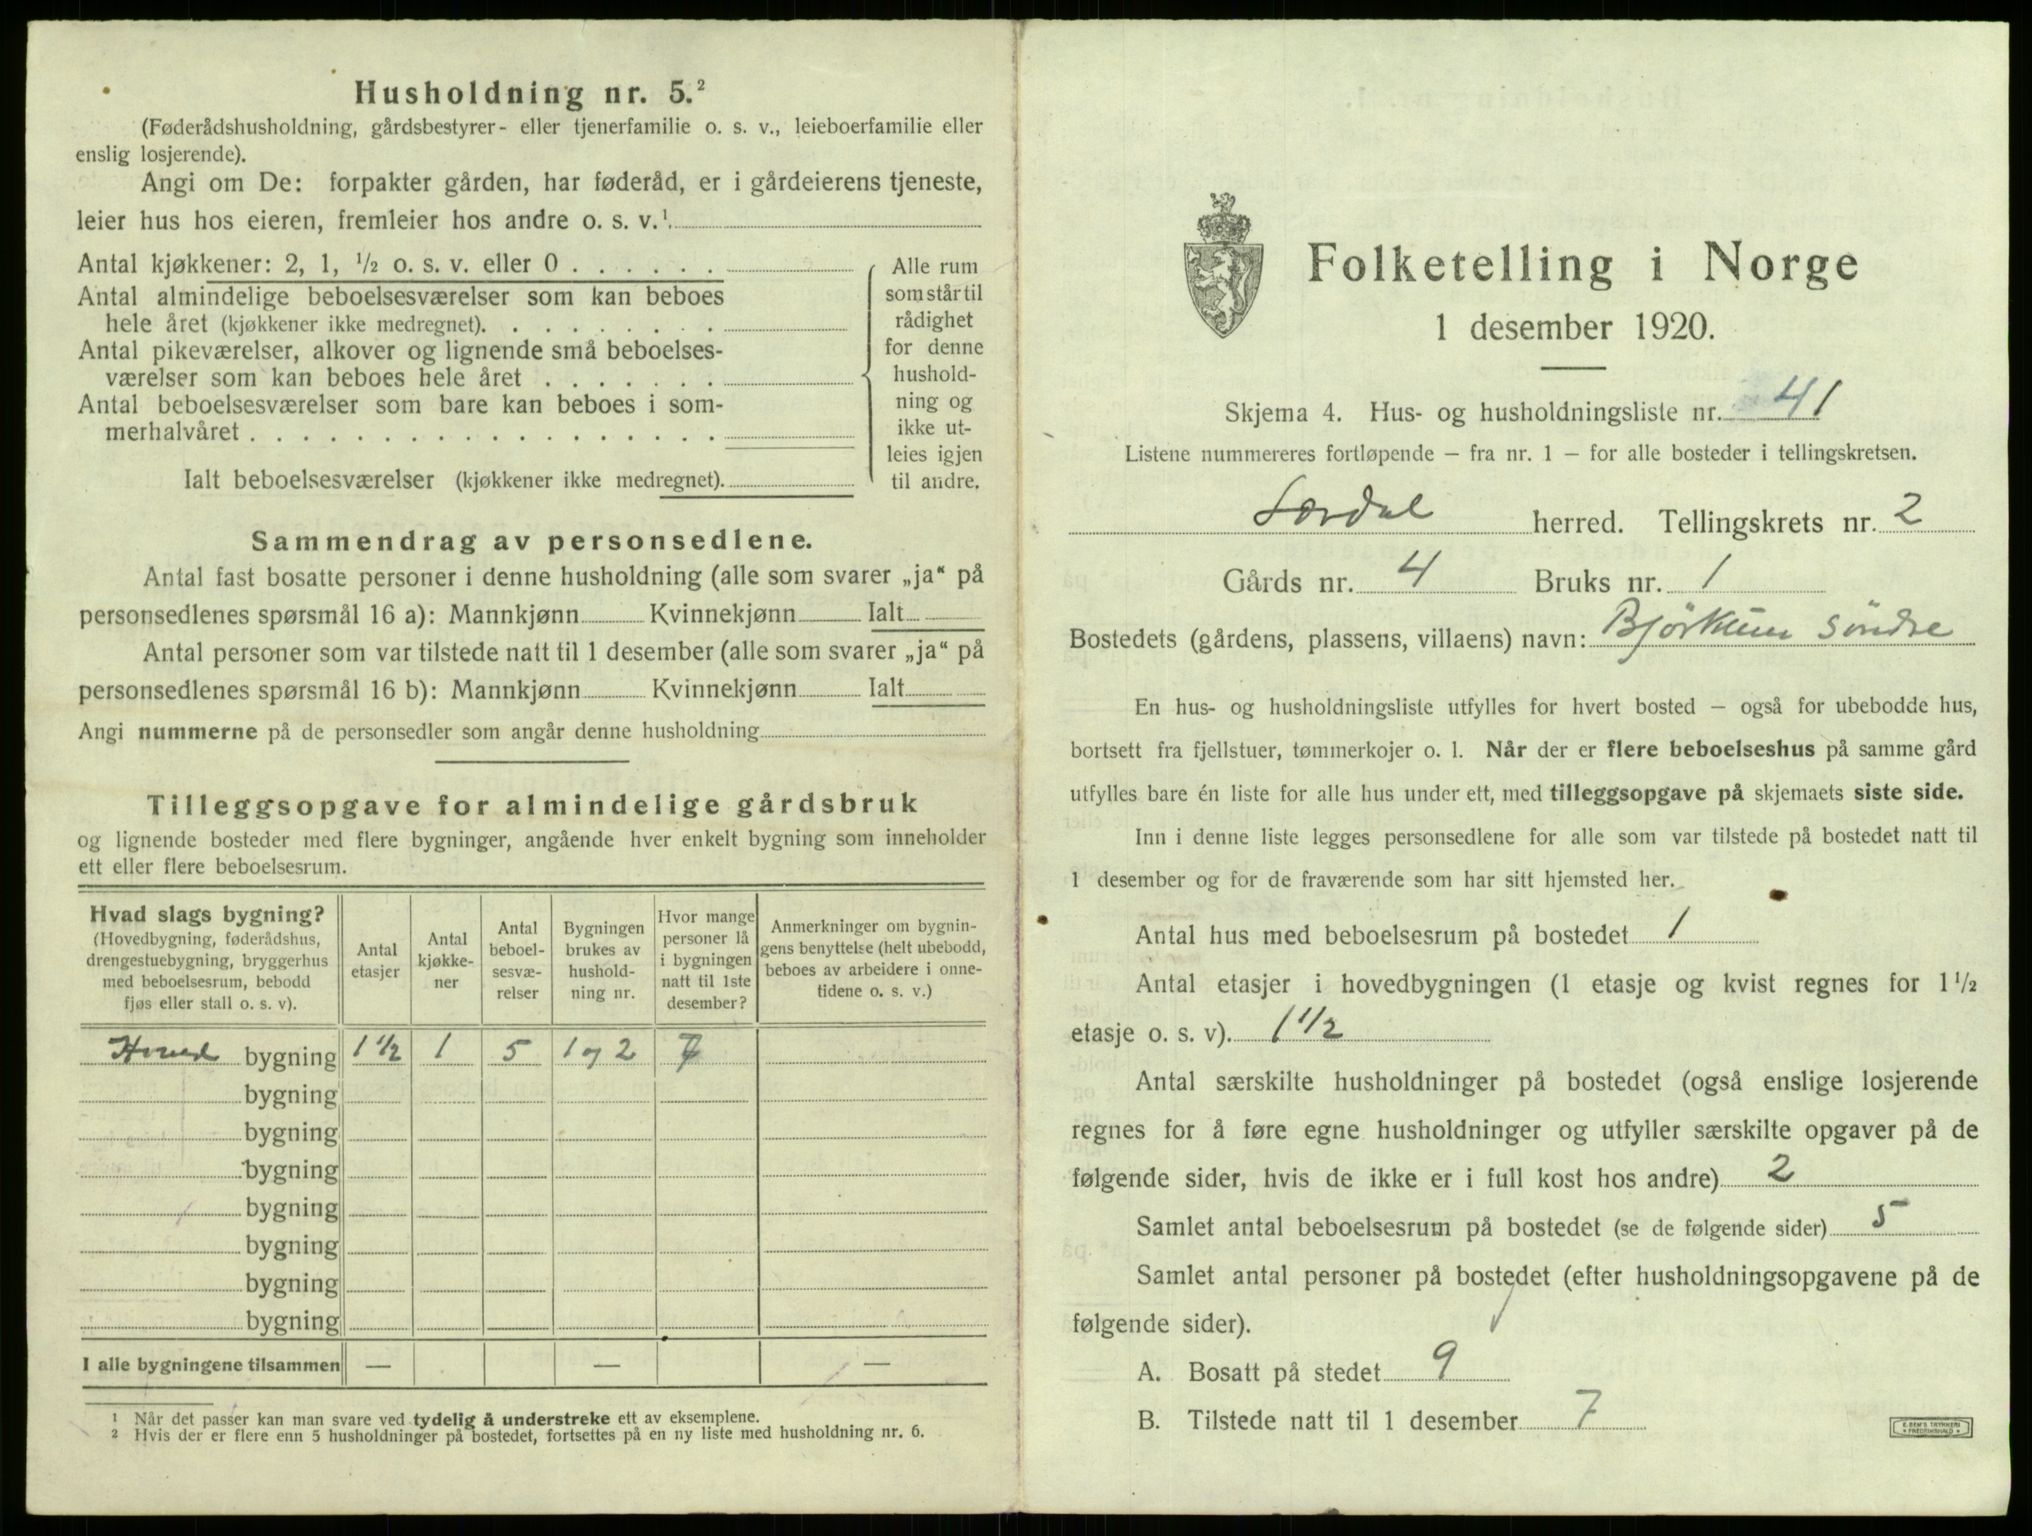 Husholdning nr. 5.²
(Føderådshusholdning, gårdsbestyrer- eller tjenerfamilie o. s. v., leieboerfamilie eller
enslig losjerende).
Angi om De: forpakter gården, har føderåd, er i gårdeierens tjeneste,
leier hus hos eieren, fremleier hos andre o. s. v.¹
Antal kjøkkener: 2, 1, ½ o. s. v. eller 0 . . . . . .
Antal almindelige beboelsesværelser som kan beboes
hele året (kjøkkener ikke medregnet). . . . . . . . .
Antal pikeværelser, alkover og lignende små beboelses-
værelser som kan beboes hele året . . . . . . .
Antal beboelsesværelser som bare kan beboes i som-
merhalvåret . . . . . . . . . . . . . . . . . .
Ialt beboelsesværelser (kjøkkener ikke medregnet).
Alle rum
som står til
rådighet
for denne
hushold-
ning og
ikke ut-
leies igjen
til andre.
Sammendrag av personsedlene.
Antal fast bosatte personer i denne husholdning (alle som svarer „ja“ på
personsedlenes spørsmål 16 a): Mannkjønn Kvinnekjønn Ialt
Antal personer som var tilstede natt til 1 desember (alle som svarer „ja“ på
personsedlenes spørsmål 16 b): Mannkjønn Kvinnekjønn Ialt
Angi nummerne på de personsedler som angår denne husholdning
Tilleggsopgave for almindelige gårdsbruk
og lignende bosteder med flere bygninger, angående hver enkelt bygning som inneholder
ett eller flere beboelsesrum.
Hvad slags bygning?
(Hovedbygning, føderådshus,
drengestuebygning, bryggerhus
med beboelsesrum, bebodd
fjøs eller stall o. s. v).
Antal
etasjer
Antal
kjøkke-
ner
Antal
beboel-
sesvæ-
relser
Bygningen
brukes av
hushold-
ning nr.
Hvor mange
personer lå
i bygningen
natt til 1ste
desember?
Anmerkninger om bygnin-
gens benyttelse (helt ubebodd,
beboes av arbeidere i onne-
tidene o. s. v.)
Hoved bygning 1 ½ 1 5 1 og 2 7
bygning
bygning
bygning
bygning
bygning
bygning
bygning
I alle bygningene tilsammen — — —
¹ Når det passer kan man svare ved tydelig å understreke ett av eksemplene.
² Hvis der er flere enn 5 husholdninger på bostedet, fortsettes på en ny liste med husholdning nr. 6.
Folketelling i Norge
1 desember 1920.
Skjema 4. Hus- og husholdningsliste nr. 41
Listene nummereres fortløpende – fra nr. 1 – for alle bosteder i tellingskretsen.
Lærdal herred. Tellingskrets nr. 2
Gårds nr. 4 Bruks nr. 1
Bostedets (gårdens, plassens, villaens) navn: Bjørkum söndre
En hus- og husholdningsliste utfylles for hvert bosted – også for ubebodde hus,
bortsett fra fjellstuer, tømmerkojer o. l. Når der er flere beboelseshus på samme gård
utfylles bare én liste for alle hus under ett, med tilleggsopgave på skjemaets siste side.
Inn i denne liste legges personsedlene for alle som var tilstede på bostedet natt til
1 desember og for de fraværende som har sitt hjemsted her.
Antal hus med beboelsesrum på bostedet 1
Antal etasjer i hovedbygningen (1 etasje og kvist regnes for 1 ½
etasje o. s. v). 1 ½
Antal særskilte husholdninger på bostedet (også enslige losjerende
regnes for å føre egne husholdninger og utfyller særskilte opgaver på de
følgende sider, hvis de ikke er i full kost hos andre) 2
Samlet antal beboelsesrum på bostedet (se de følgende sider) 5
Samlet antal personer på bostedet (efter husholdningsopgavene på de
følgende sider).
A. Bosatt på stedet 9
B. Tilstede natt til 1 desember 7
E. SEM'S TRYKKERI
FREDRIKSHALD